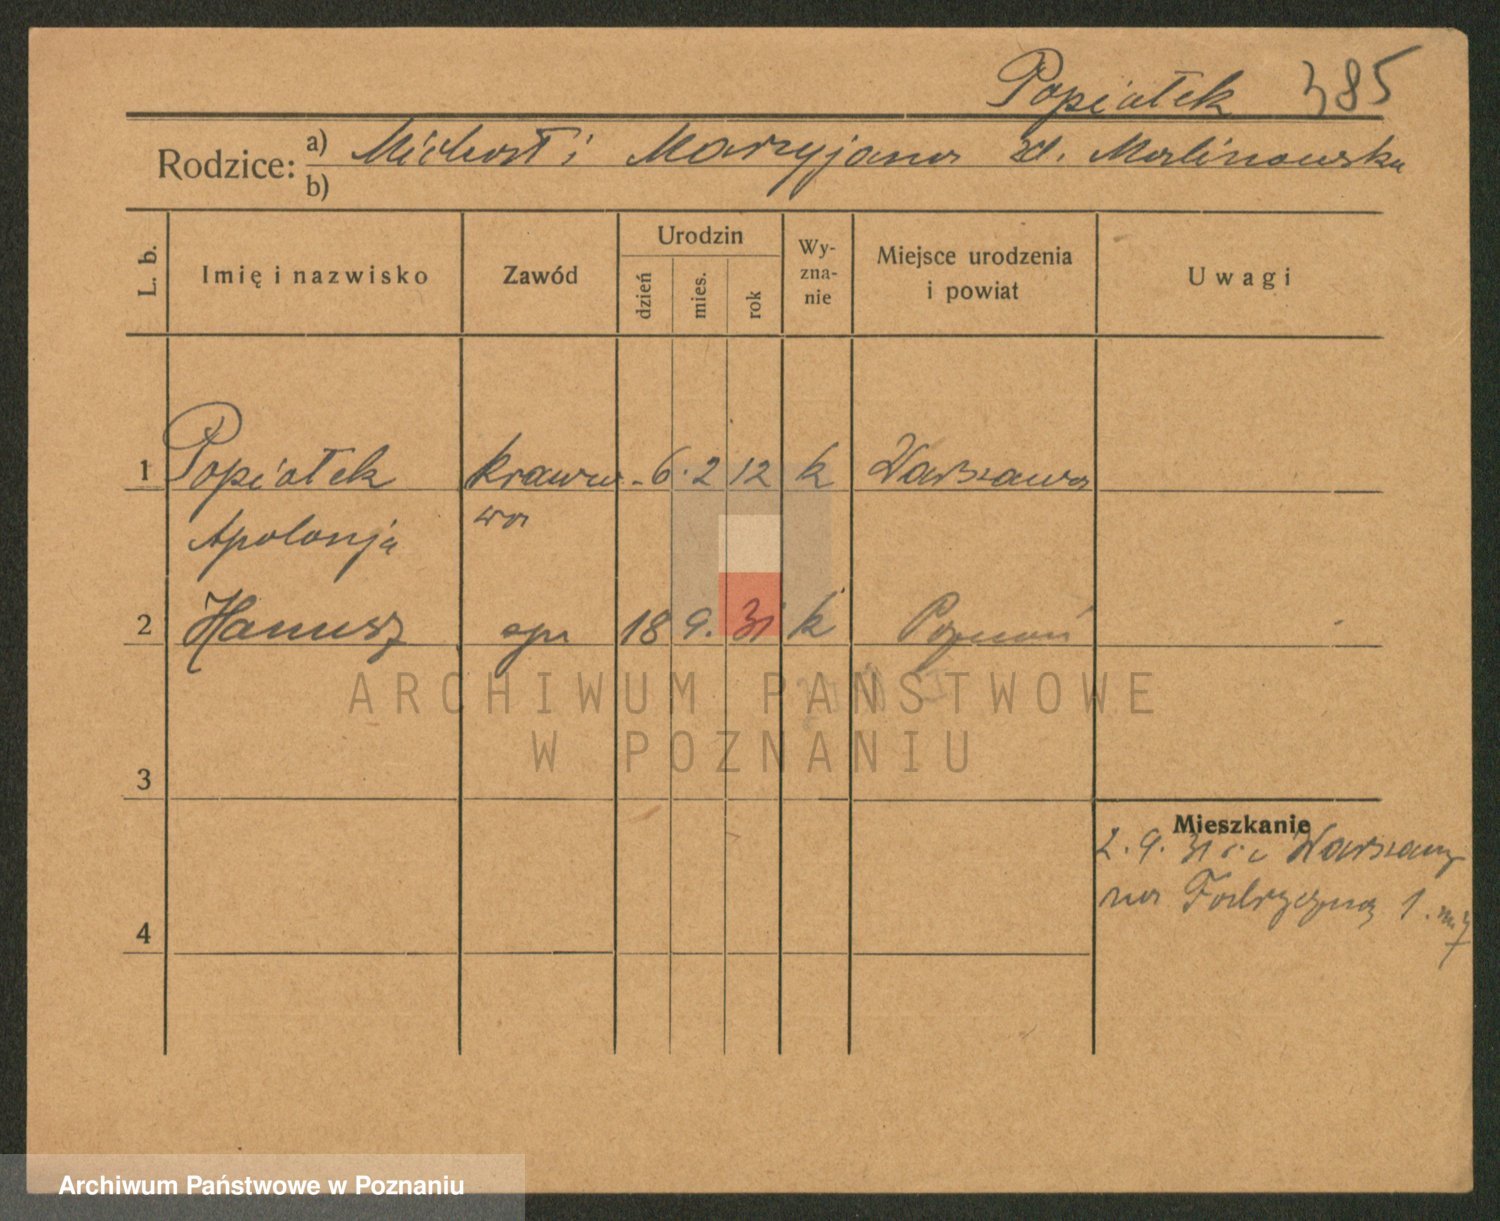 Popiołek 385
Rodzice: a) Michał i Maryjana zd. Malinowska
b)
L. b. Imię i nazwisko Zawód Urodzin dzień mies. rok Wy-zna-nie Miejsce urodzenia i powiat Uwagi
1 Popiołek krawco- 6. 2 12 k Warszawa
Apolonja wa
2 Hanusz syn 18 9. 31 k Poznań
ARCHIWUM PAŃSTWOWE
W POZNANIU
3
Mieszkanie
2. 9. 31 Warszawy
na Fabryczną 1. m 7
4
Archiwum Państwowe w Poznaniu